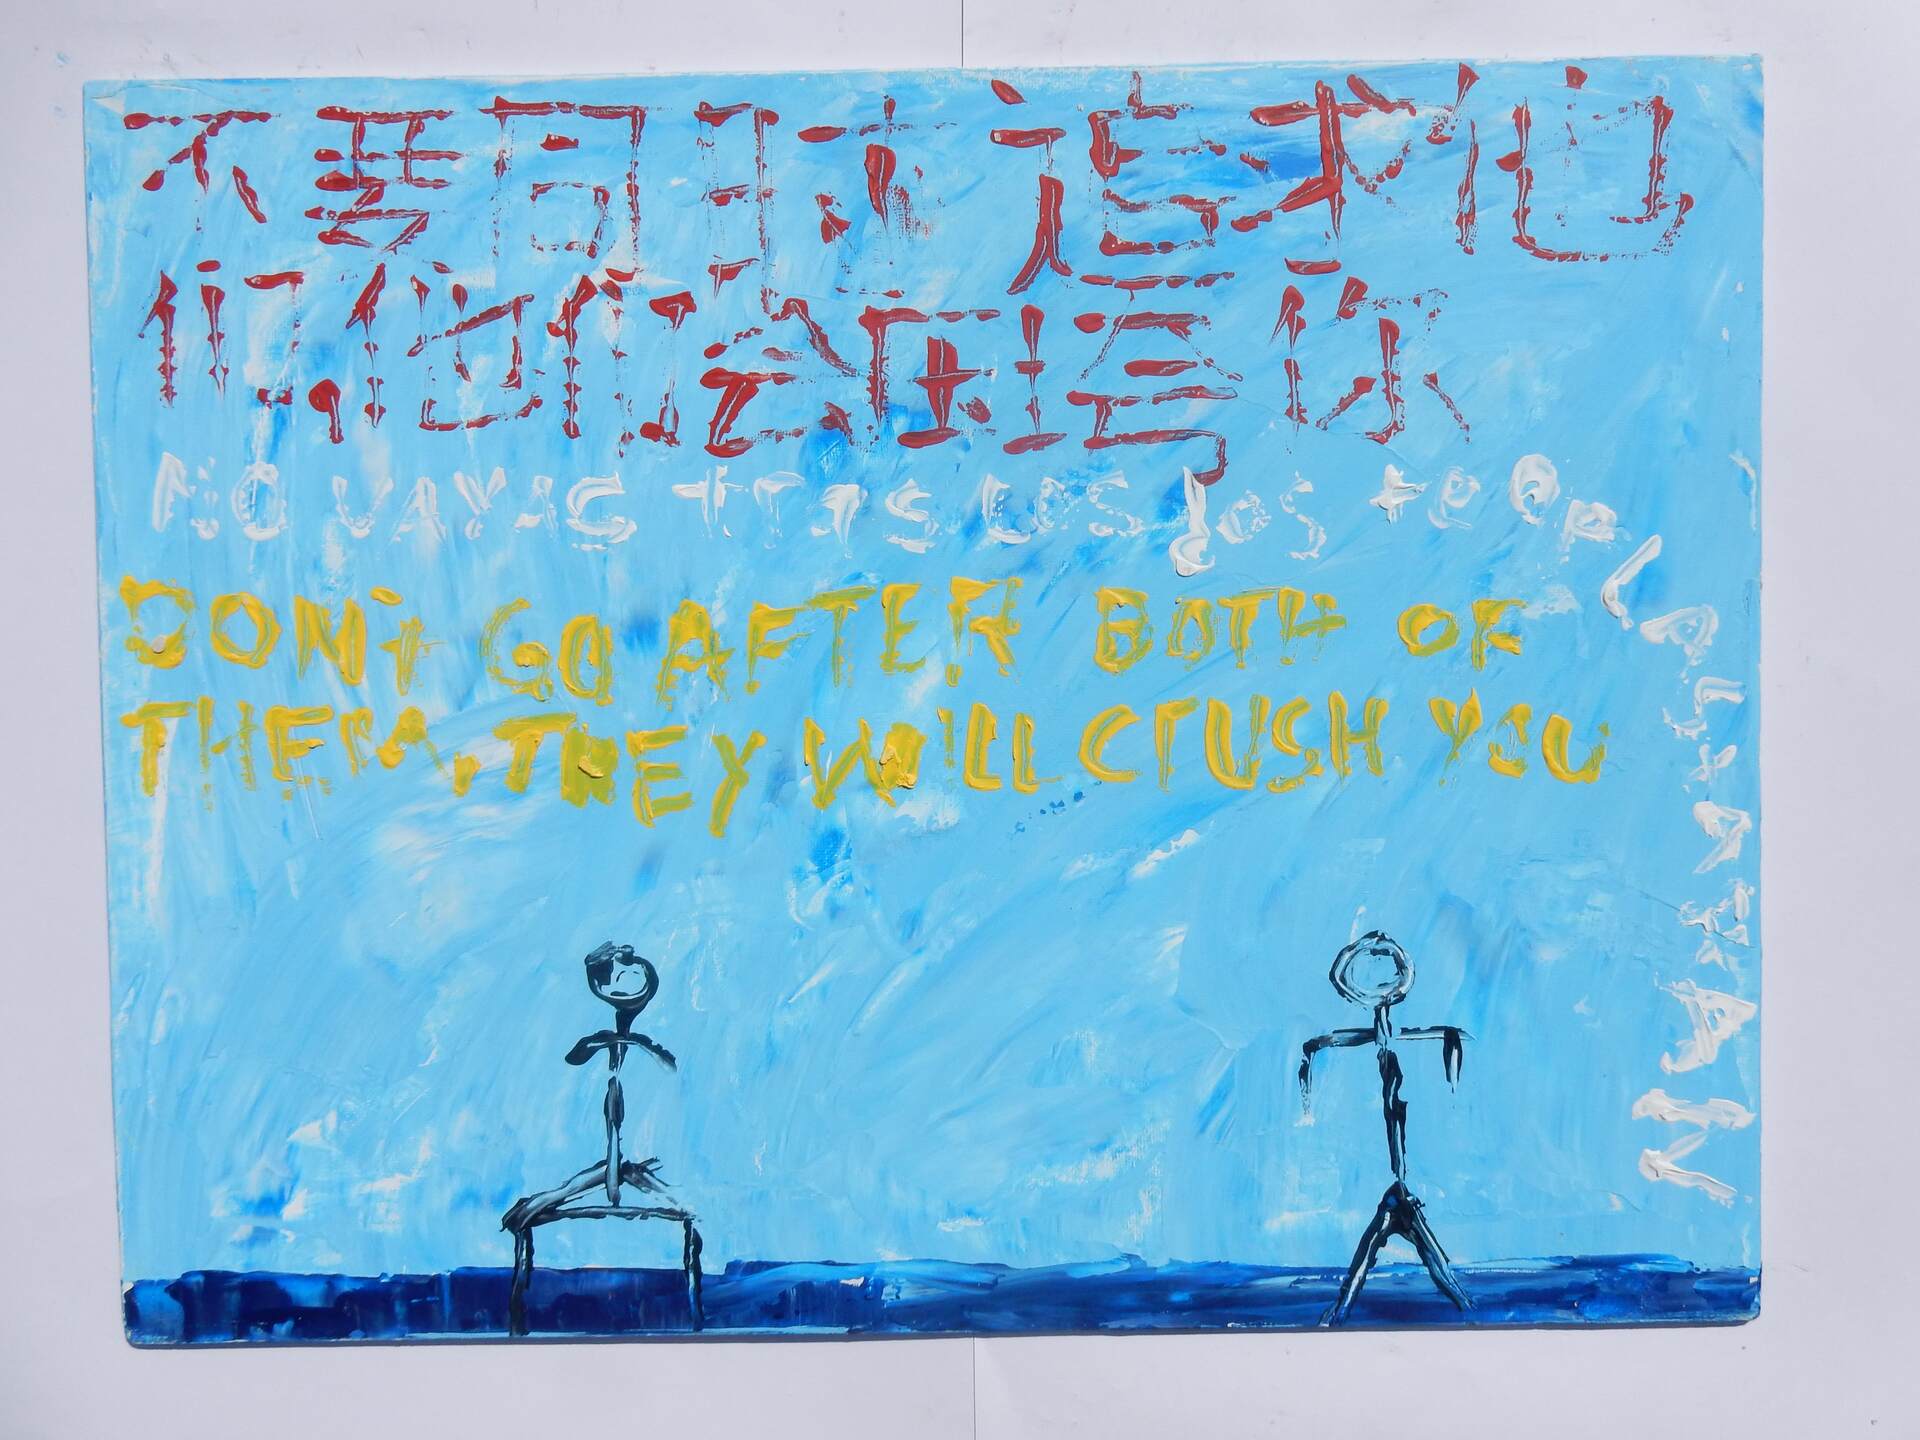 不要同时追求他
们,他们会压垮你
NO VAYAS TrAS LOS dos te APLASTARÁN
DON't GO AFTER BOTH OF
THEM, THEY WILL CrUSH YOU